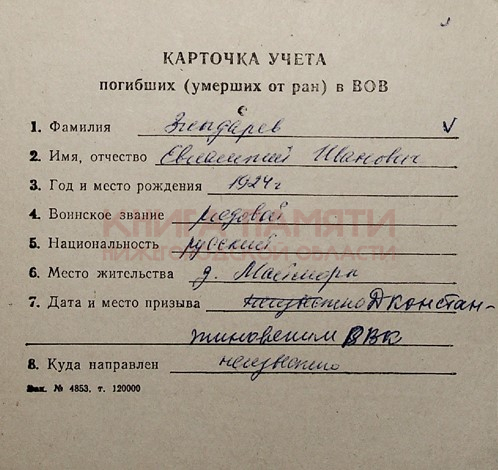 КАРТОЧКА УЧЕТА
погибших (умерших от ран) в ВОВ
1. Фамилия
2. Имя, отчество Евлампий Иванович
3. Год и место рождения 1924 г
4. Воинское звание рядовой
КНИГА ПАМЯТИ
5. Национальность русский
НИЖЕГОРОДСКОЙ ОБЛАСТИ
6. Место жительства д.
7. Дата и место призыва неизвестно Д Констан-
тиновским РВК
8. Куда направлен неизвестно
Зак. № 4853, т. 120000